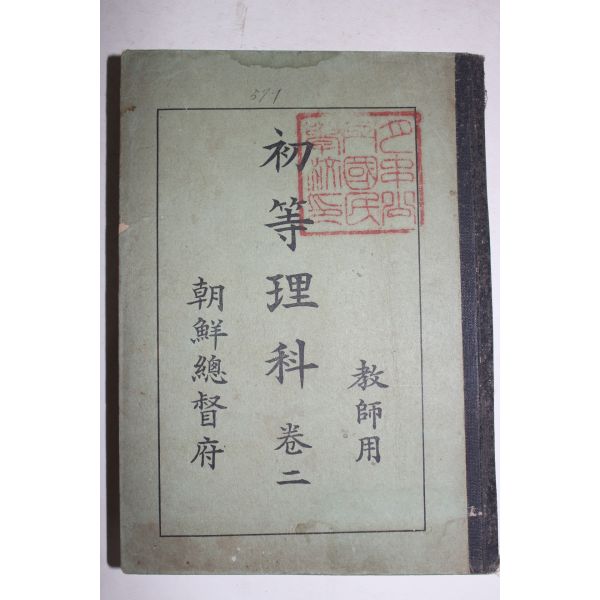 57-1
教師用
初等理科 卷二
朝鮮總督府